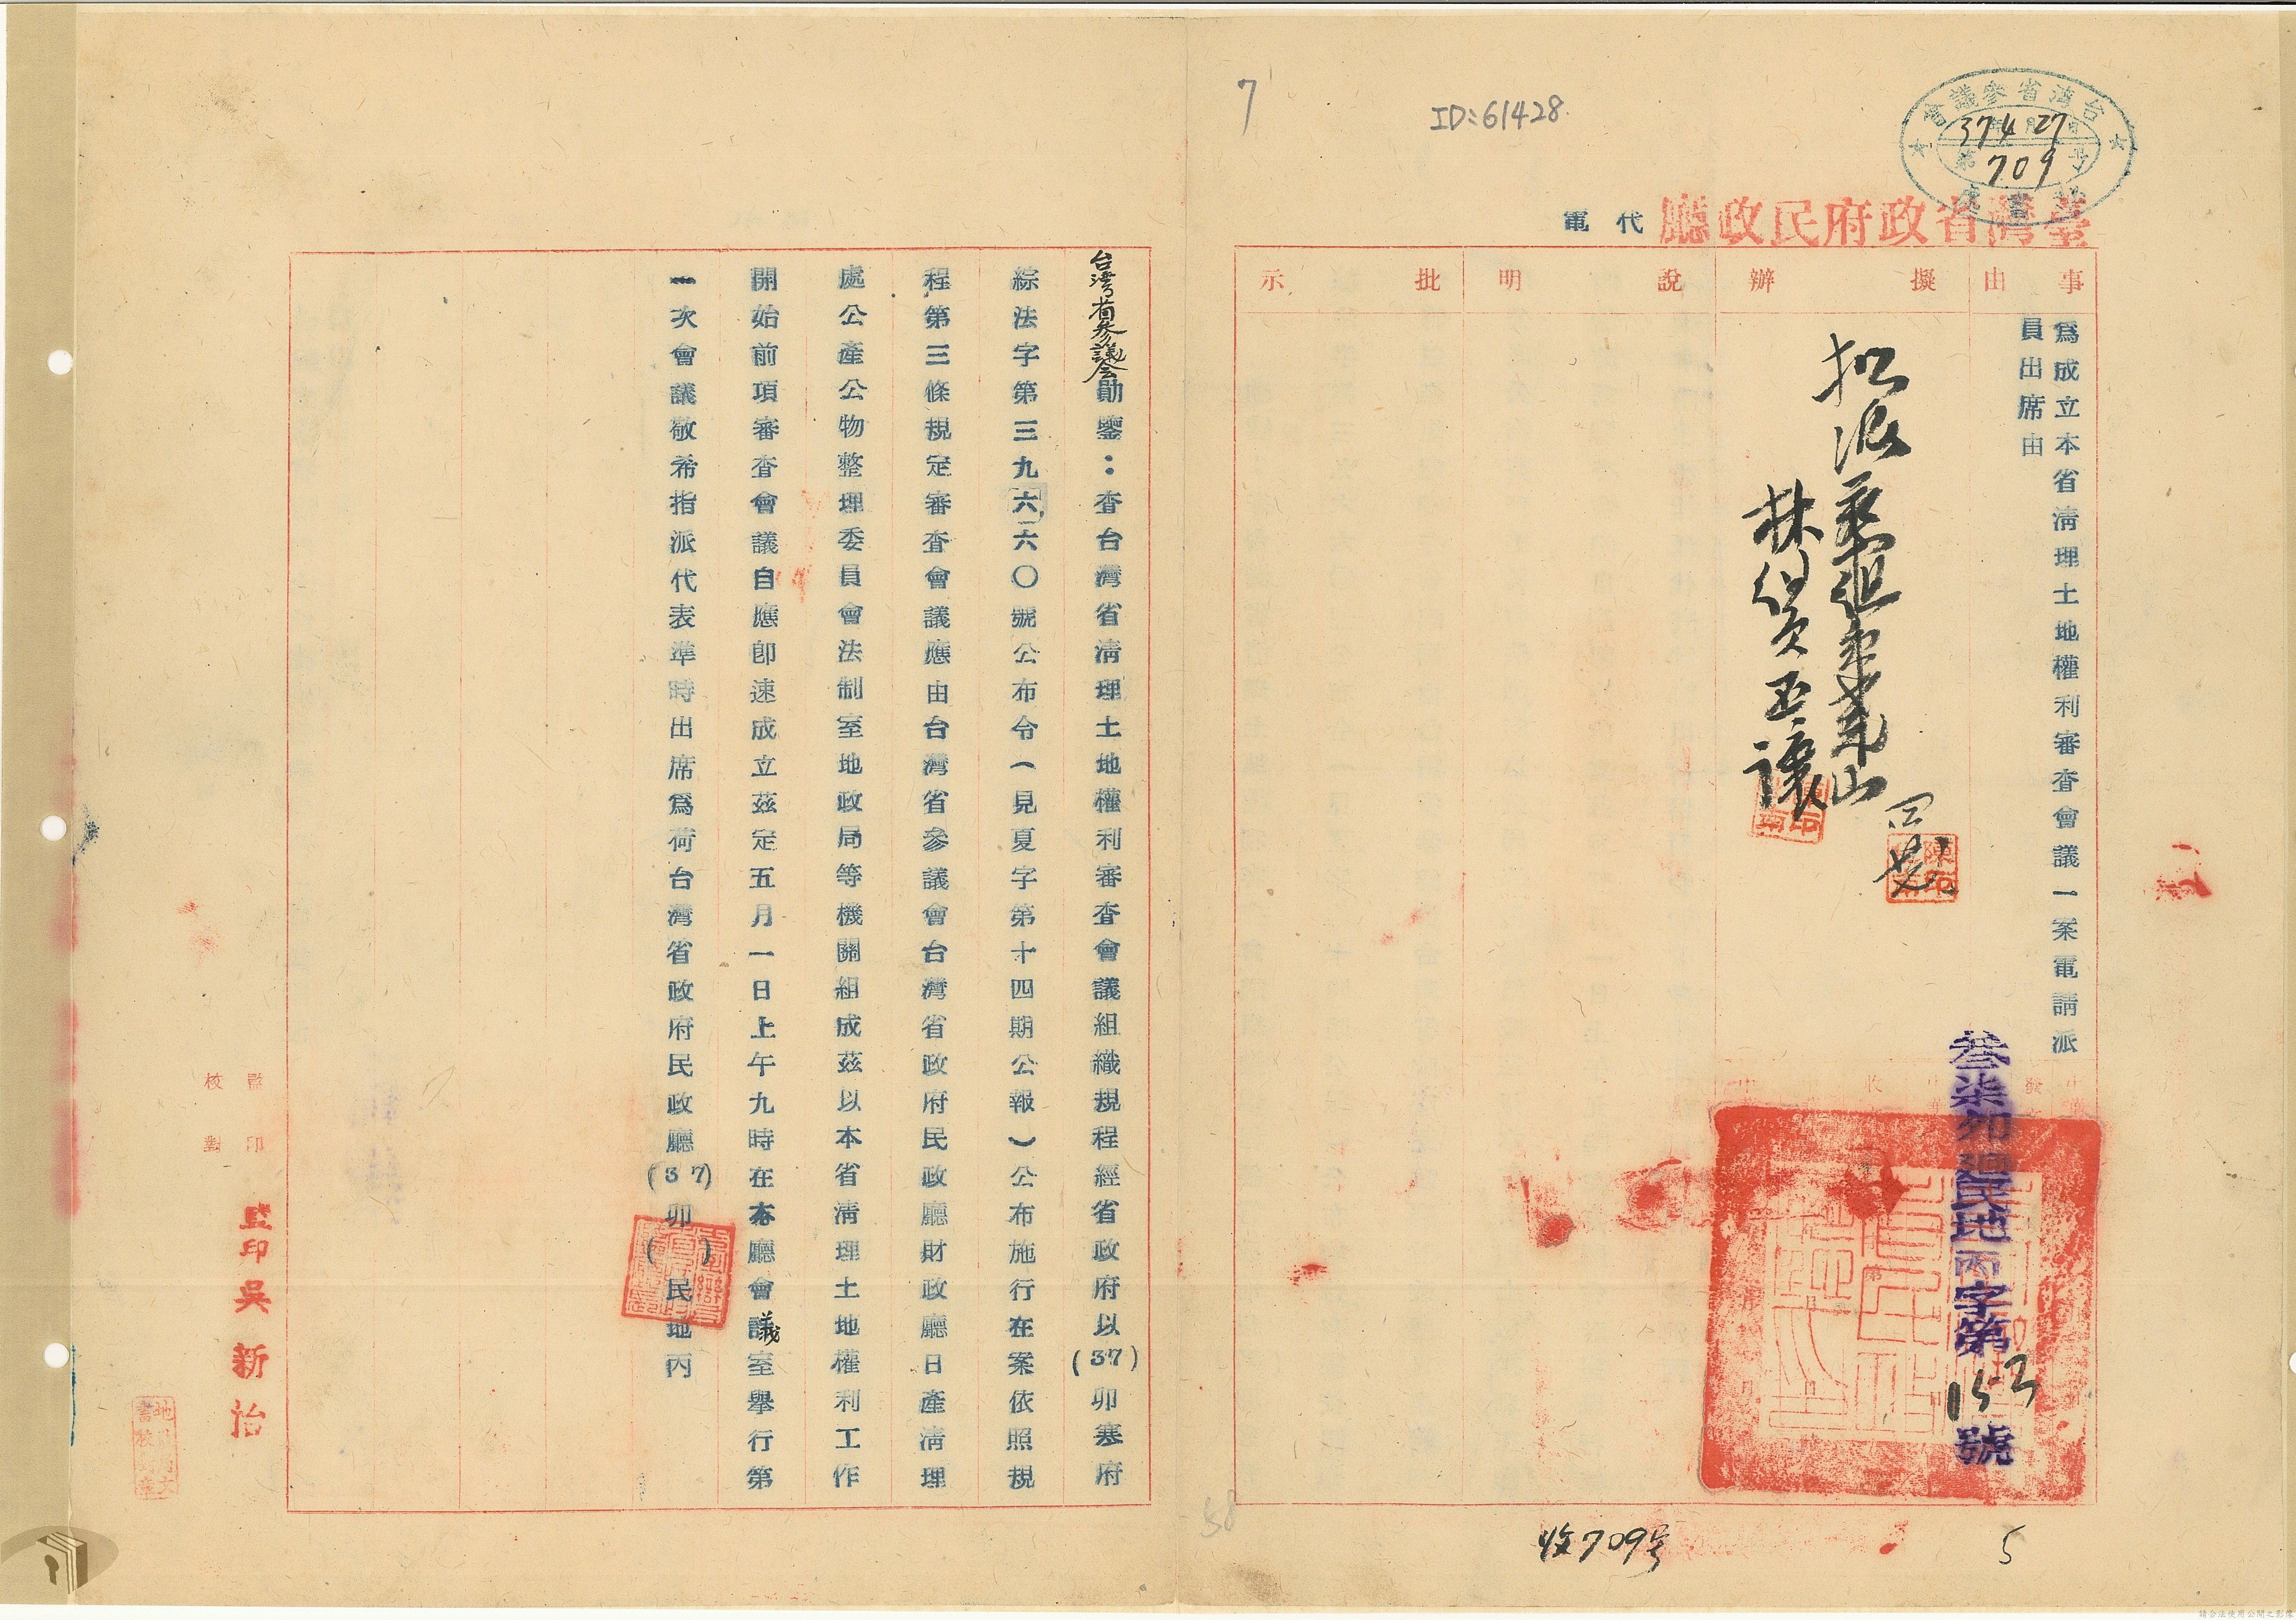 7
ID:61428
台灣省參議會
37 4 27
709
臺灣省政府民政廳
代電
事由
擬辦
說明
批示
爲成立本省淸理土地權利審查會議一案電請派
員出席由
擬派
林
叁柒卯
民地丙字第153號
台湾省参議会勛鑒：查台灣省淸理土地權利審查會議組織規程經省政府以(37)卯寒府
綜法字第三九六六〇號公布令(見夏字第十四期公報)公布施行在案依照規
程第三條規定審查會議應由台灣省參議會台灣省政府民政廳財政廳日產淸理
處公產公物整理委員會法制室地政局等機關組成茲以本省淸理土地權利工作
開始前項審查會議自應卽速成立茲定五月一日上午九時在本廳會議室舉行第
一次會議敬希指派代表準時出席爲荷台灣省政府民政廳(37)卯( )民地丙
監印
校對
監印 吳新治
收709号
5
58
請合法使用公開之影像